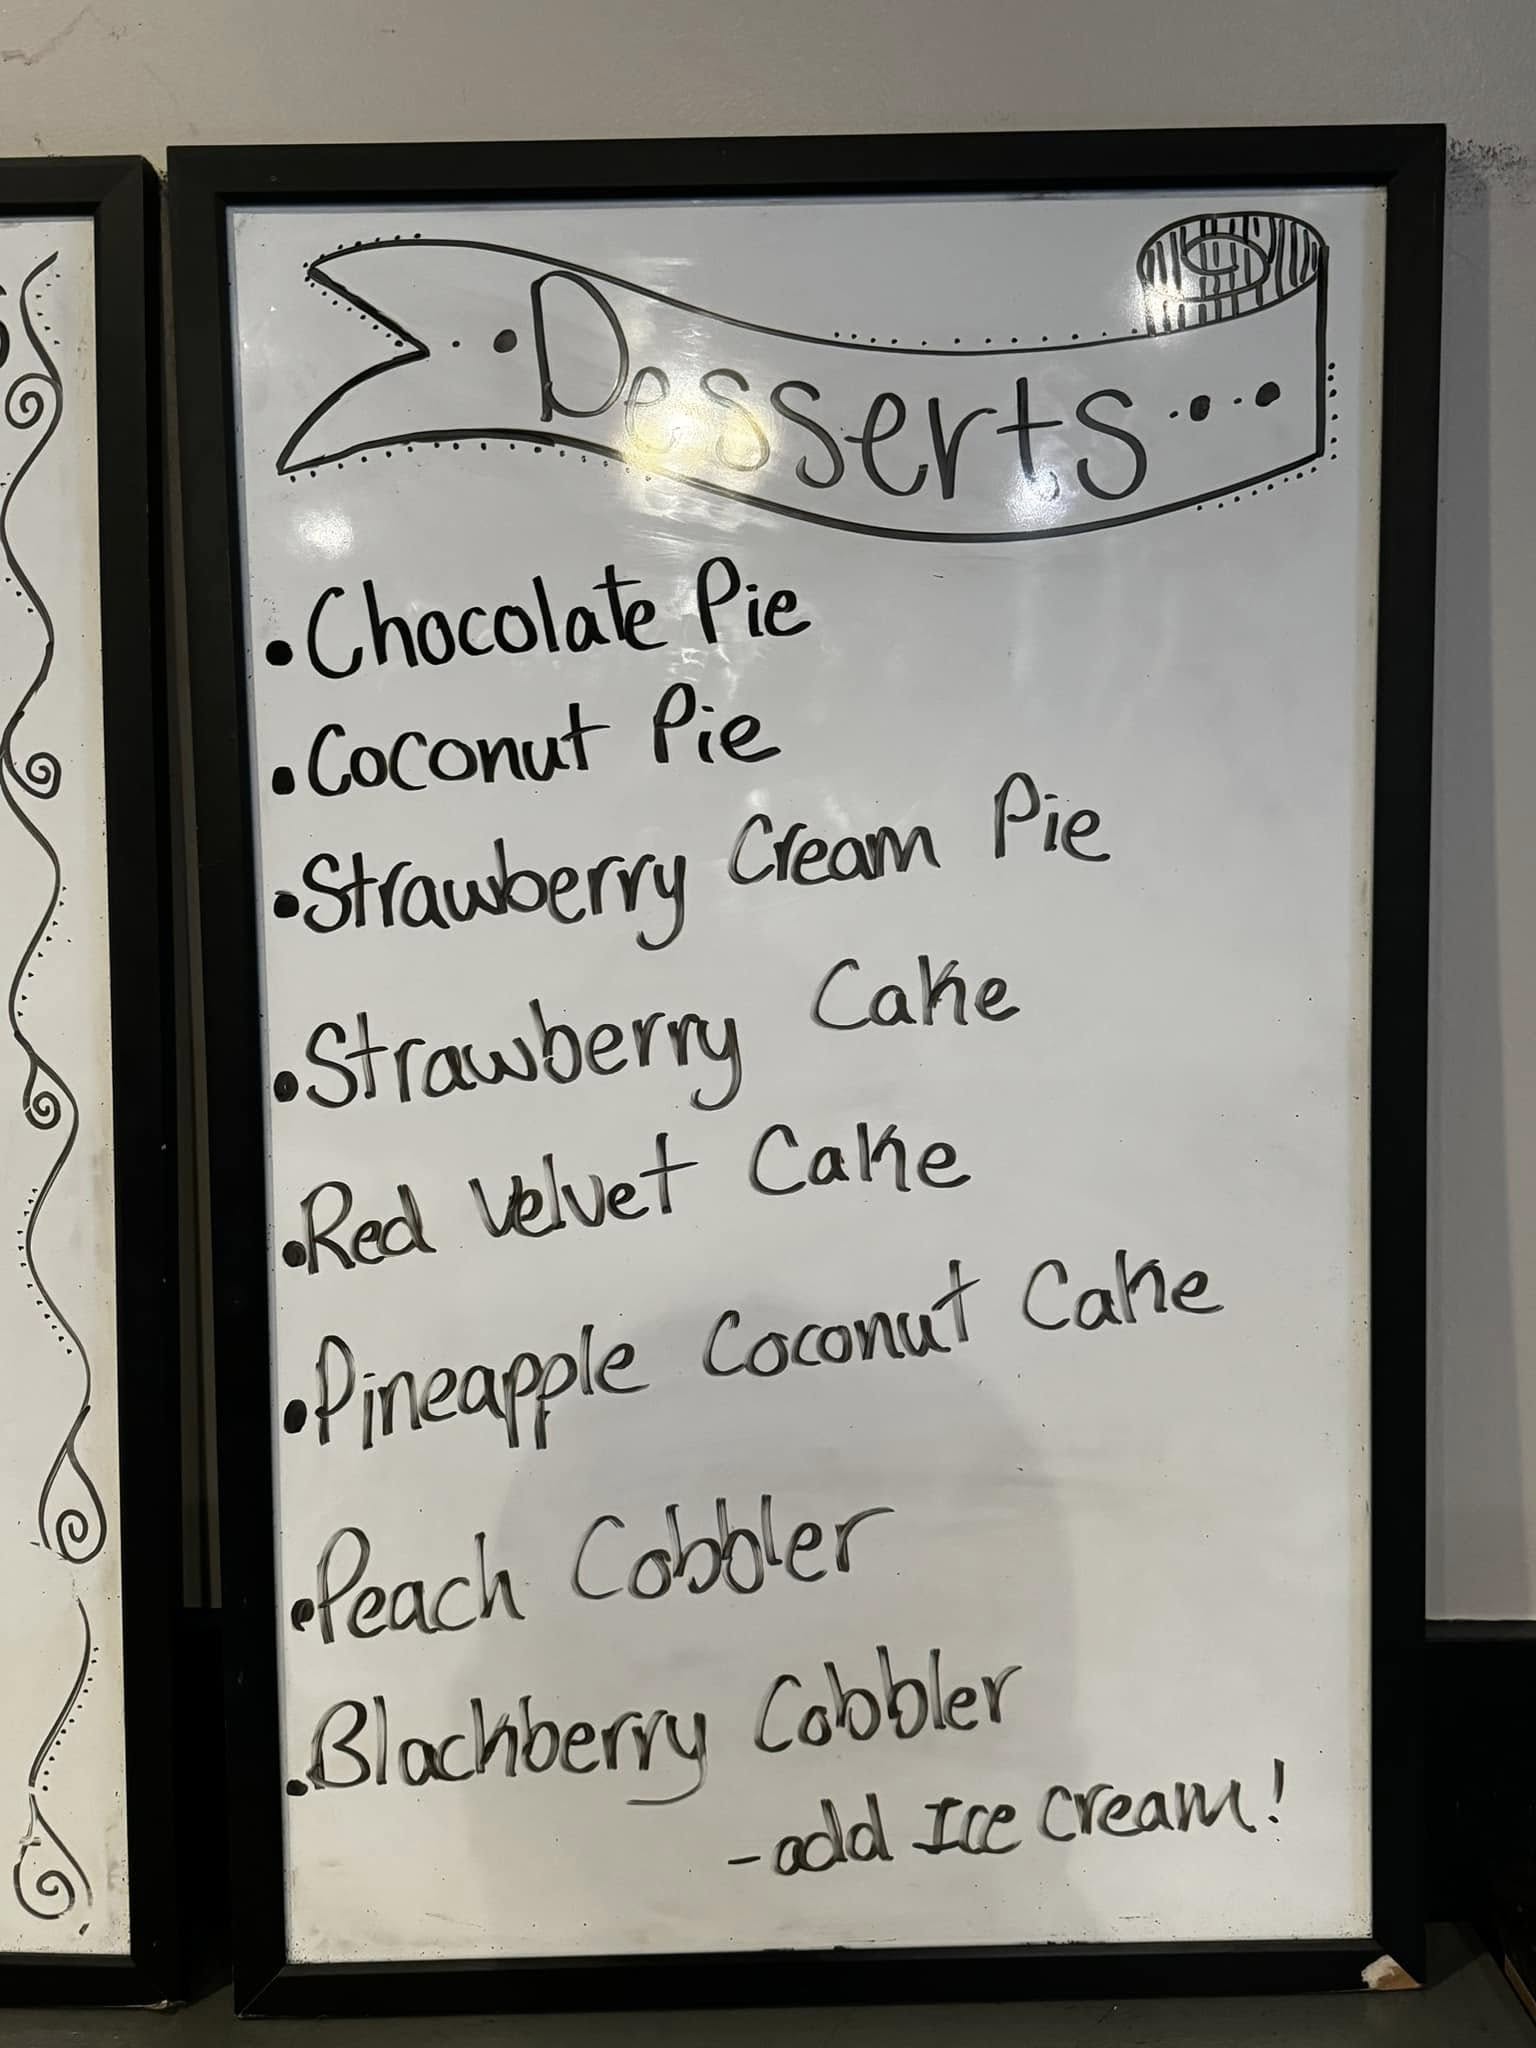 Desserts
• Chocolate Pie
• Coconut Pie
• Strawberry Cream Pie
• Strawberry Cake
• Red Velvet Cake
• Pineapple Coconut Cake
• Peach Cobbler
• Blackberry Cobbler
- add Ice cream!